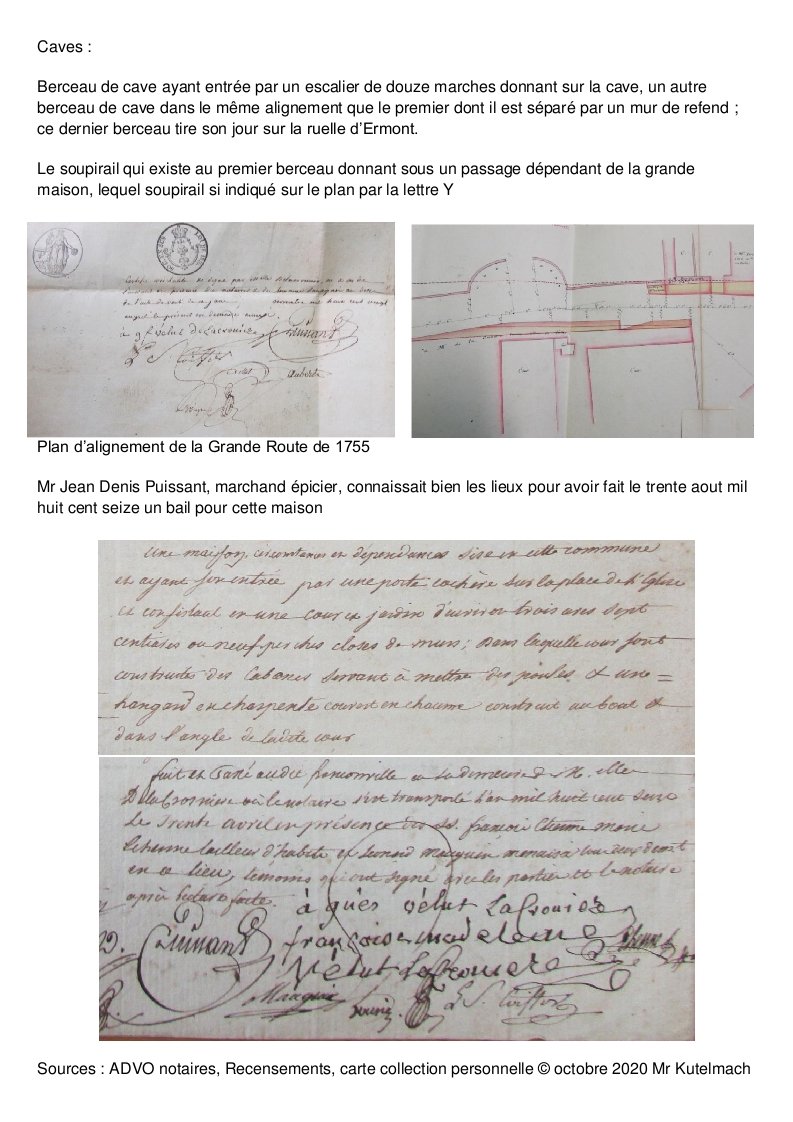 Caves :
Berceau de cave ayant entrée par un escalier de douze marches donnant sur la cave, un autre
berceau de cave dans le même alignement que le premier dont il est séparé par un mur de refend ;
ce dernier berceau tire son jour sur la ruelle d'Ermont.
Le soupirail qui existe au premier berceau donnant sous un passage dépendant de la grande
maison, lequel soupirail si indiqué sur le plan par la lettre Y
Plan d'alignement de la Grande Route de 1755
Mr Jean Denis Puissant, marchand épicier, connaissait bien les lieux pour avoir fait le trente aout mil
huit cent seize un bail pour cette maison
une maison, circonstances et dépendances sise en cette commune
et ayant son entrée par une porte cochère sur la place de l'Eglise
et consistant en une cour et jardin d'environ trois ares sept
centiares ou neuf perches closes de murs; dans laquelle cour sont
construites des Cabanes servant à mettre des poules & une =
hangard en charpente couvert en chaume construit au bout &
dans l'angle de ladite cour
fait et passé audit franconville en la demeure de M. elle
où le notaire s'est transporté l'an mil huit cent seize
Le Trente avril en présence des Srs. françois Etienne
Etienne tailleur d'habits et
en ce lieu, témoins qui ont signé avec les parties et le notaire
après lecture faite.
à gnès vélut LaCroniere
françoise madeleine
vélut LaCroniere
Sources : ADVO notaires, Recensements, carte collection personnelle © octobre 2020 Mr Kutelmach